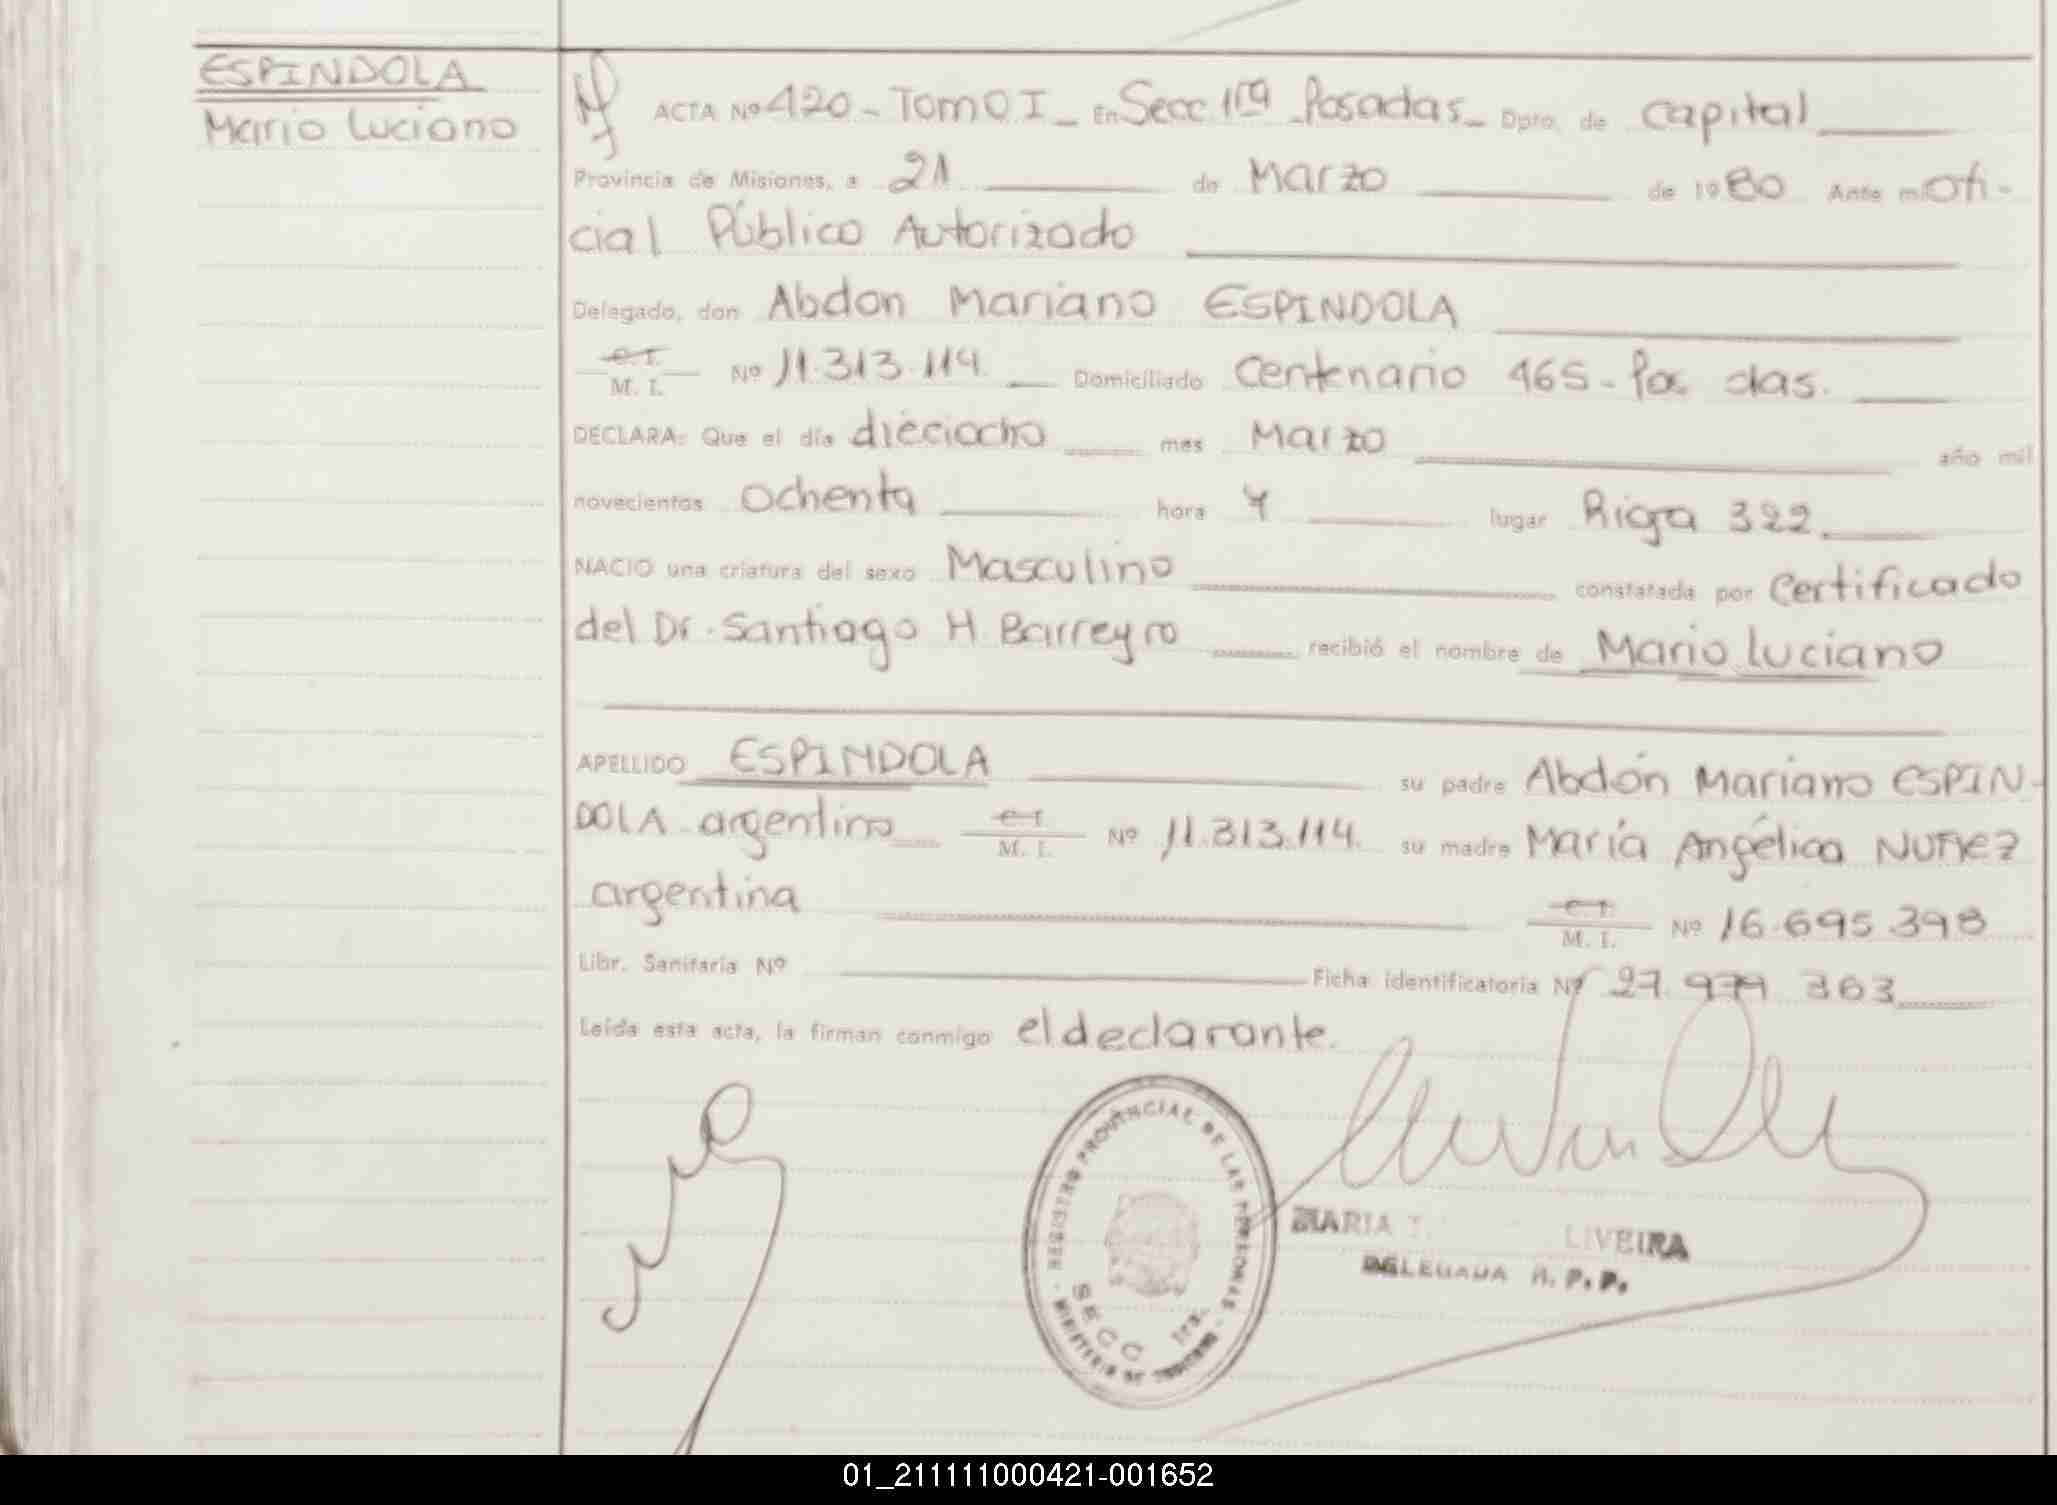 ESPINDOLA
Mario Luciano
ACTA Nº 420 - Tomo I - En Secc. 1ra Posadas - Dpto. de Capital
Provincia de Misiones, a 21 de Marzo de 1980 Ante mi Ofi-
cial Público Autorizado
Delegado, don Abdon Mariano ESPINDOLA
C.I.
M. I. Nº 11.313.114. Domiciliado Centenario 465 - Po das.
DECLARA: Que el día dieciocho mes Marzo año mil
novecientos Ochenta hora 7 lugar Rioja 322.
NACIO una criatura del sexo Masculino constatada por Certificado
del Dr. Santiago H. Barreyro recibió el nombre de Mario Luciano
APELLIDO ESPINDOLA su padre Abdón Mariano ESPIN-
DOLA argentino C.I.
M. I. Nº 11.313.114. su madre María Angélica NUÑEZ
argentina C.I.
M. I. Nº 16.695.398
Libr. Sanitaria Nº Ficha identificatoria Nº 27.979 363
Leída esta acta, la firman conmigo el declarante.
REGISTRO PROVINCIAL DE LAS PERSONAS
MINISTERIO DE GOBIERNO
SECC 1ra.
MARIA T. LIVEIRA
DELEGADA R. P. P.
01_211111000421-001652